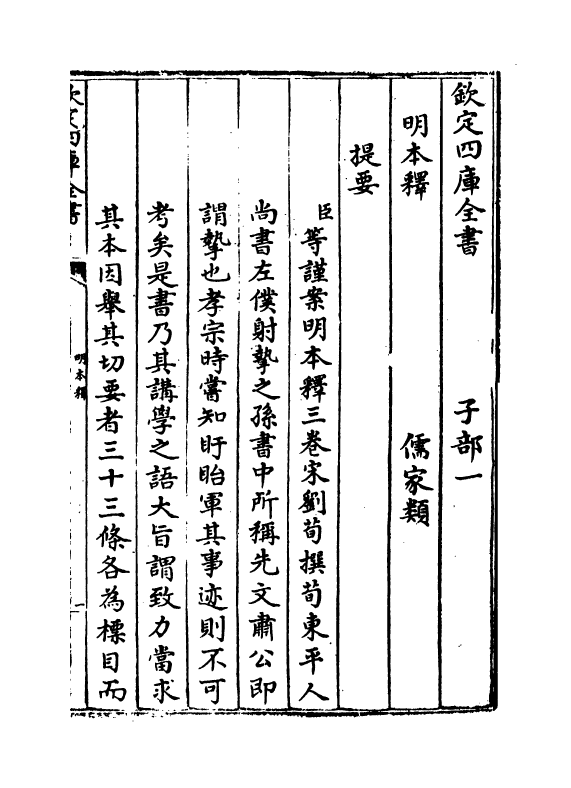 欽定四庫全書　子部一
明本釋　儒家類
提要
臣等謹案明本釋三卷宋劉荀撰荀東平人
尚書左僕射摯之孫書中所稱先文肅公即
謂摯也孝宗時嘗知盱眙軍其事迹則不可
考矣是書乃其講學之語大旨謂致力當求
其本因舉其切要者三十三條各為標目而
欽定四庫全書
明本釋
一